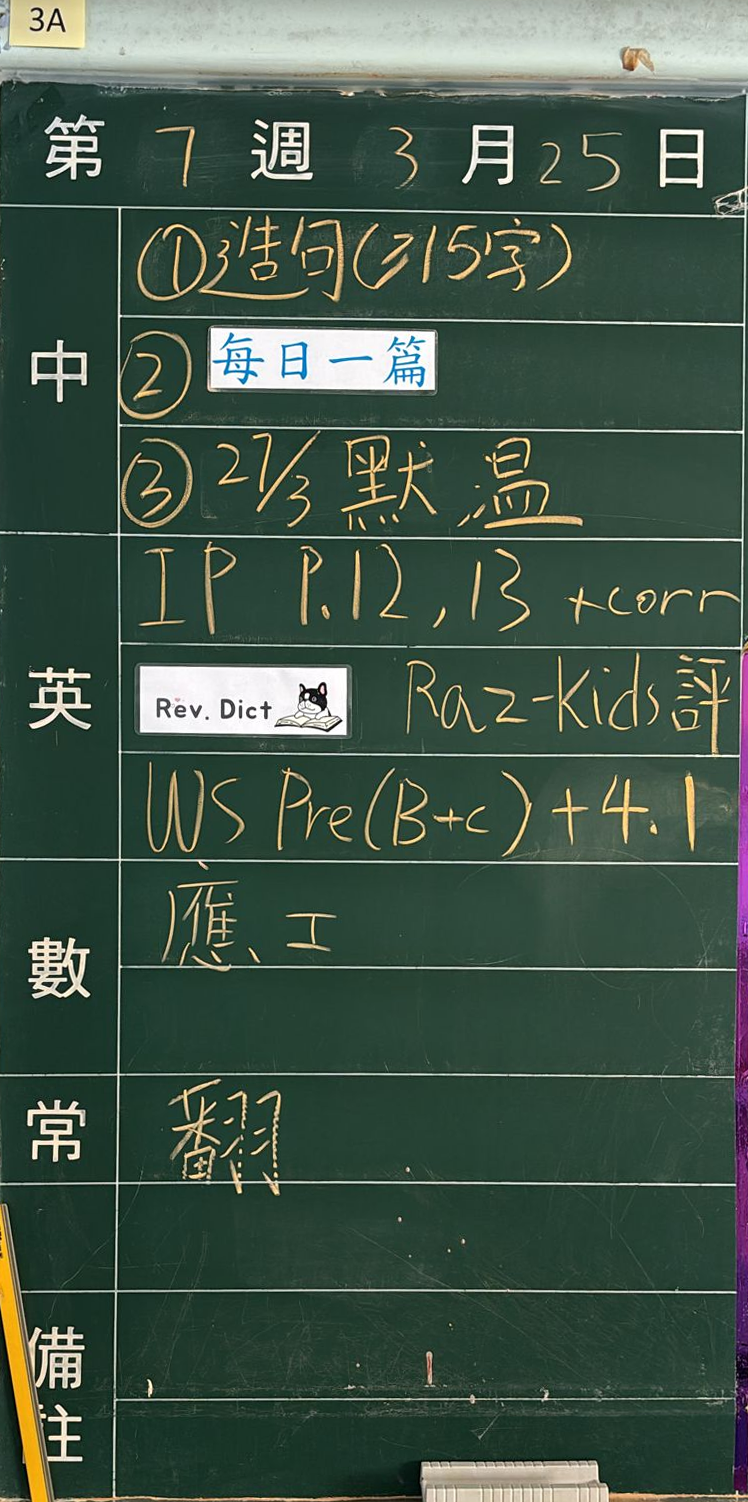 3A
第 7 週 3 月 25 日
中
①造句(≥15字)
② 每日一篇
③ 27/3 默 温
英
IP P.12, 13 +corr
Rev. Dict Raz-Kids評
WS Pre(B+c)+4.1
數
應、工
常
翻
備註